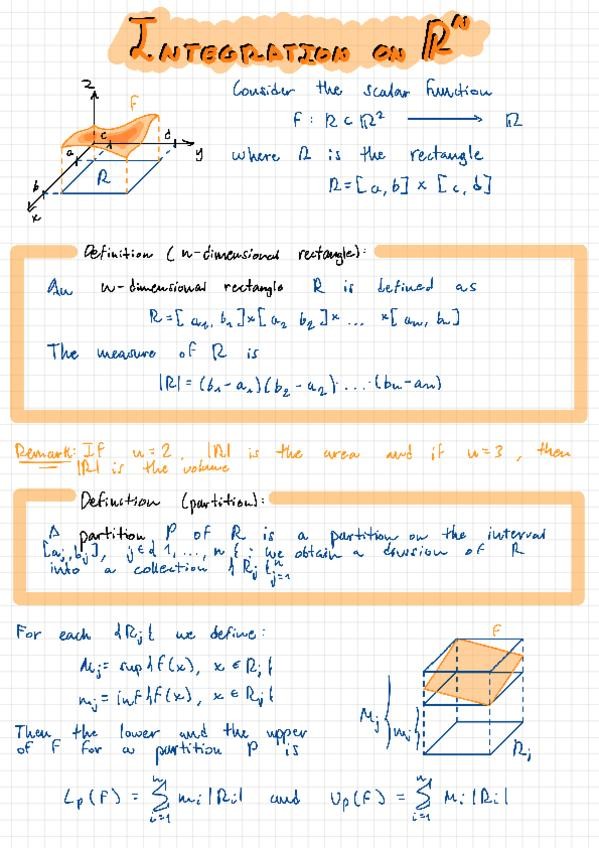 INTEGRATION ON ℝⁿ
Consider the scalar function
z
F
F : R ⊂ ℝ² ⟶ ℝ
c
d
a
y
where R is the rectangle
R
b
R = [a, b] × [c, d]
x
Definition (n-dimensional rectangle):
An n-dimensional rectangle R is defined as
R = [a₁, b₁] × [a₂ b₂] × ... × [aₙ, bₙ]
The measure of R is
|R| = (b₁ - a₁)(b₂ - a₂) · ... · (bₙ - aₙ)
Remark: If n = 2, |R| is the area and if n = 3, then
|R| is the volume
Definition (partition):
A partition P of R is a partition on the interval
[aⱼ, bⱼ], j ∈ {1, ..., n} ; we obtain a division of R
into a collection {Rⱼ}ⁿⱼ₌₁
For each {Rⱼ} we define:
F
Mⱼ = sup{f(x), x ∈ Rⱼ}
mⱼ = inf{f(x), x ∈ Rⱼ}
Mⱼ
mⱼ
Then the lower and the upper
of F for a partition P is
Rⱼ
Lₚ(F) = ∑ⁿᵢ₌₁ mᵢ|Rᵢ| and Uₚ(F) = ∑ⁿᵢ₌₁ Mᵢ|Rᵢ|